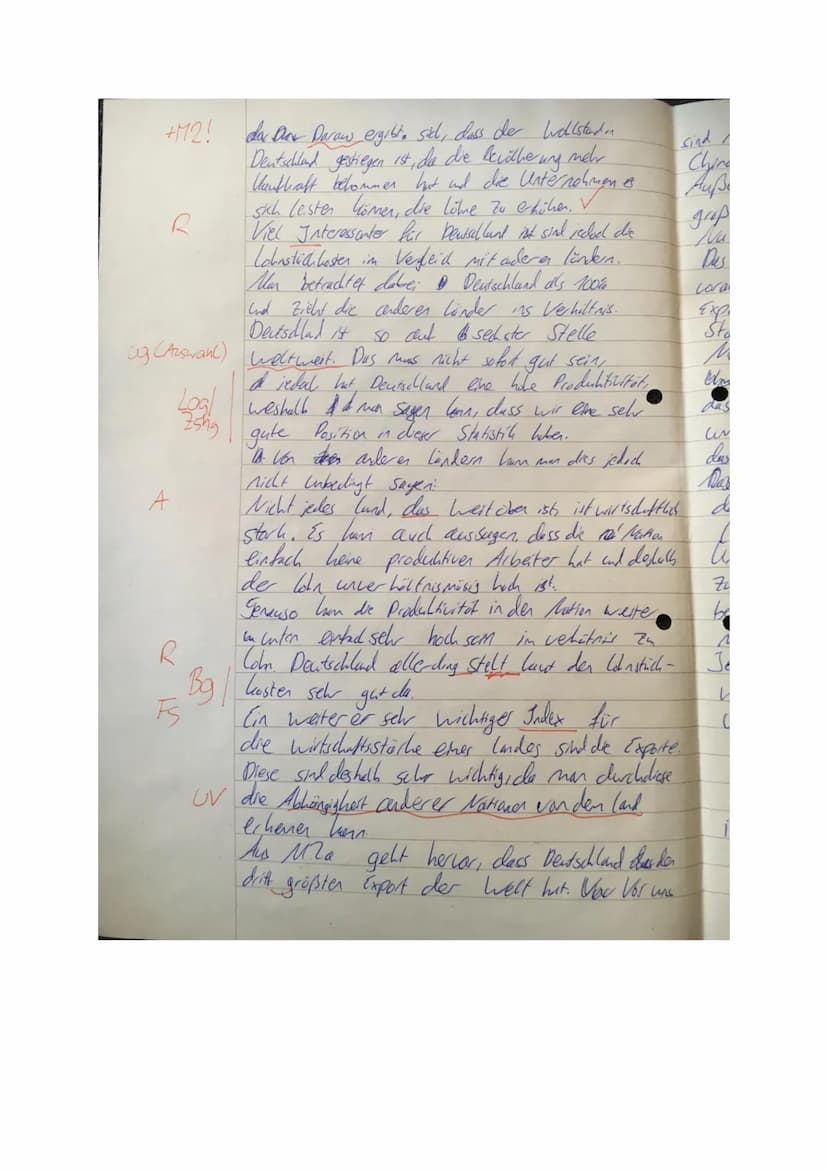 +M2!
Daraus ergibt sich, dass der Wohlstand in
Deutschland gestiegen ist, da die Bevölkerung mehr
Kaufkraft bekommen hat und die Unternehmen es
sich leisten können, die Löhne zu erhöhen.
R
Viel Interessanter für Deutschland sind jedoch die
Lohnstückkosten im Vergleich mit anderen Ländern.
Man betrachtet dabei Deutschland als 100%
und zieht die anderen Länder ins Verhältnis.
Deutschland ist so auf sechster Stelle
ug (Auswahl)
weltweit. Das muss nicht sofort gut sein,
jedoch hat Deutschland eine hohe Produktivität,
Log/
Zshg
weshalb man sagen kann, dass wir eine sehr
gute Position in dieser Statistik haben.
von anderen Ländern kann man dies jedoch
nicht unbedingt sagen.
A
Nicht jedes Land, das weit oben ist, ist wirtschaftlich
stark. Es kann auch aussagen, dass die Nation
einfach keine produktiven Arbeiter hat und deshalb
der Lohn unverhältnismäsig hoch ist.
Genauso kann die Produktivität in den Nation weiter
unten einfach sehr hoch sein im verhältnis zu
R
Lohn. Deutschland allerding stelt laut den Lohnstück-
Bg
kosten sehr gut da.
FS
Ein weiterer sehr wichtiger Index für
die wirtschaftsstärke eines Landes sind die Exporte.
Diese sind deshalb sehr wichtig, da man durch diese
UV
die Abhängigkeit anderer Nationen von dem Land
erkennen kann.
Aus M2a geht hervor, dass Deutschland den
dritt größten Export der Welt hat. Vor uns